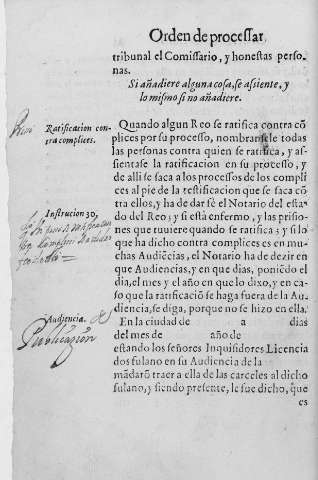 Orden de processar
tribunal el Comissario, y honestas perso-
nas.
Si añadiere alguna cosa, se assiente, y
lo mismo si no añadiere.
Ratificacion con-
tra complices.
Quando algun Reo se ratifica contra cõ
plices por su processo, nombranse le todas
las personas contra quien se ratifica, y as-
sientase la ratificacion en su processo, y
de alli se saca a los processos de los compli
ces al pie de la testificacion que se saca cõ
tra ellos, y ha de dar fè el Notario del esta-
do del Reo; y si està enfermo, y las prisio-
nes que tuuiere quando se ratifica; y si lo
que ha dicho contra complices es en mu-
chas Audiẽcias, el Notario ha de dezir en
que Audiencias, y en que dias, poniẽdo el
dia, el mes y el año en que lo dixo, y en ca-
so que la ratificaciõ se haga fuera de la Au-
diencia, se diga, porque no se hizo en ella.
Instrucion 30,
Audiencia. de
Publicazion
En la ciudad de a dias
del mes de año de
estando los señores Inquisidores Licencia
dos fulano en su Audiencia de la
mãdarõ traer a ella de las carceles al dicho
fulano, y siendo presente, le fue dicho, que
es